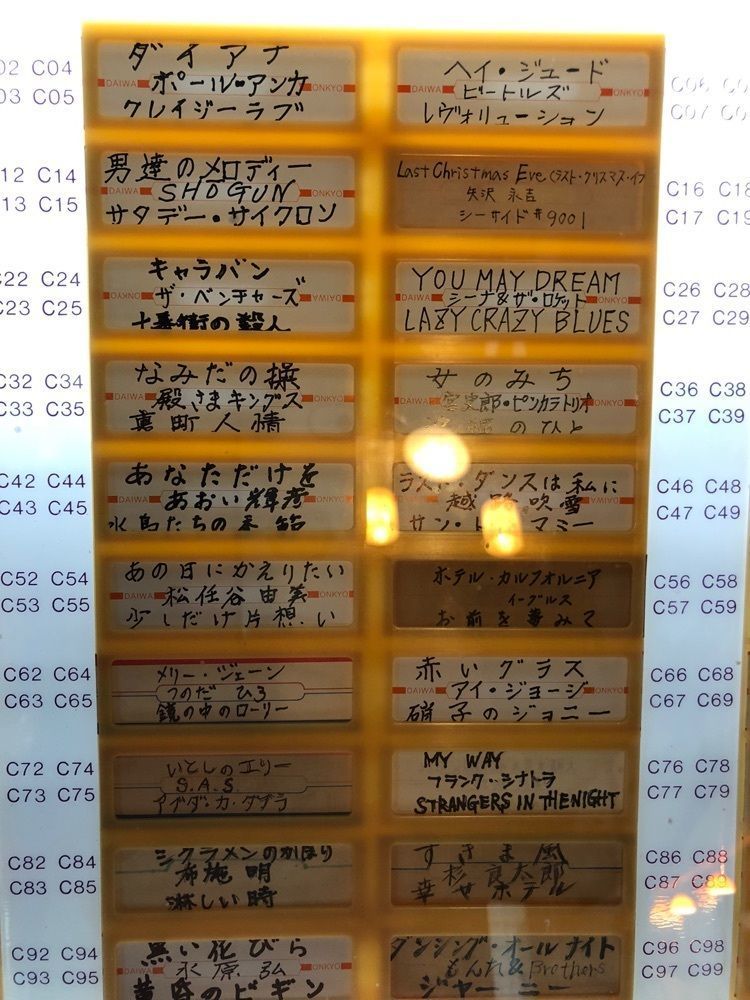 02 C04
03 C05
ダイアナ
DAIWA ポール・アンカ ONKYO
クレイジーラブ
ヘイ・ジュード
DAIWA ビートルズ ONKYO
レヴォリューション
C06 C0
C07 C0
12 C14
13 C15
男達のメロディー
DAIWA SHOGUN ONKYO
サタデー・サイクロン
Last Christmas Eve (ラスト・クリスマス・イブ
矢沢 永吉
シーサイド#9001
C16 C18
C17 C19
C22 C24
C23 C25
キャラバン
ONKYO ザ・ベンチャーズ DAIWA
十番街の殺人
YOU MAY DREAM
DAIWA シーナ&ザ・ロケット ONKYO
LAZY CRAZY BLUES
C26 C28
C27 C29
C32 C34
C33 C35
なみだの操
DAIWA 殿さまキングス ONKYO
裏町人情
女のみち
DAIWA 宮史郎・ピンカラトリオ
のひと
C36 C38
C37 C39
C42 C44
C43 C45
あなただけを
DAIWA あおい輝彦 ONKYO
水鳥たちの
ラスト・ダンスは私に
越路吹雪
サン・トワ・マミー
C46 C48
C47 C49
C52 C54
C53 C55
あの日にかえりたい
DAIWA 松任谷由実 ONKYO
少しだけ片想い
ホテル・カルフォルニア
イーグルス
お前を夢みて
C56 C58
C57 C59
C62 C64
C63 C65
メリー・ジェーン
つのだ ひろ
鏡の中のローリー
赤いグラス
DAIWA アイ・ジョージ ONKYO
硝子のジョニー
C66 C68
C67 C69
C72 C74
C73 C75
いとしのエリー
S.A.S.
アブダ・カ・ダブラ
MY WAY
フランク・シナトラ
STRANGERS IN THE NIGHT
C76 C78
C77 C79
C82 C84
C83 C85
シクラメンのかほり
布施 明
淋しい時
すきま風
杉 良太郎
幸せホテル
C86 C88
C87 C89
C92 C94
C93 C95
黒い花びら
DAIWA 水原弘 ONKYO
黄昏のビギン
ダンシング・オールナイト
もんた&Brothers
ジャーニー
C96 C98
C97 C99